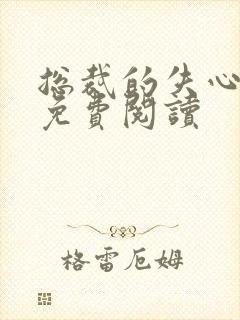 总裁的失心
免費閱讀
格雷厄姆